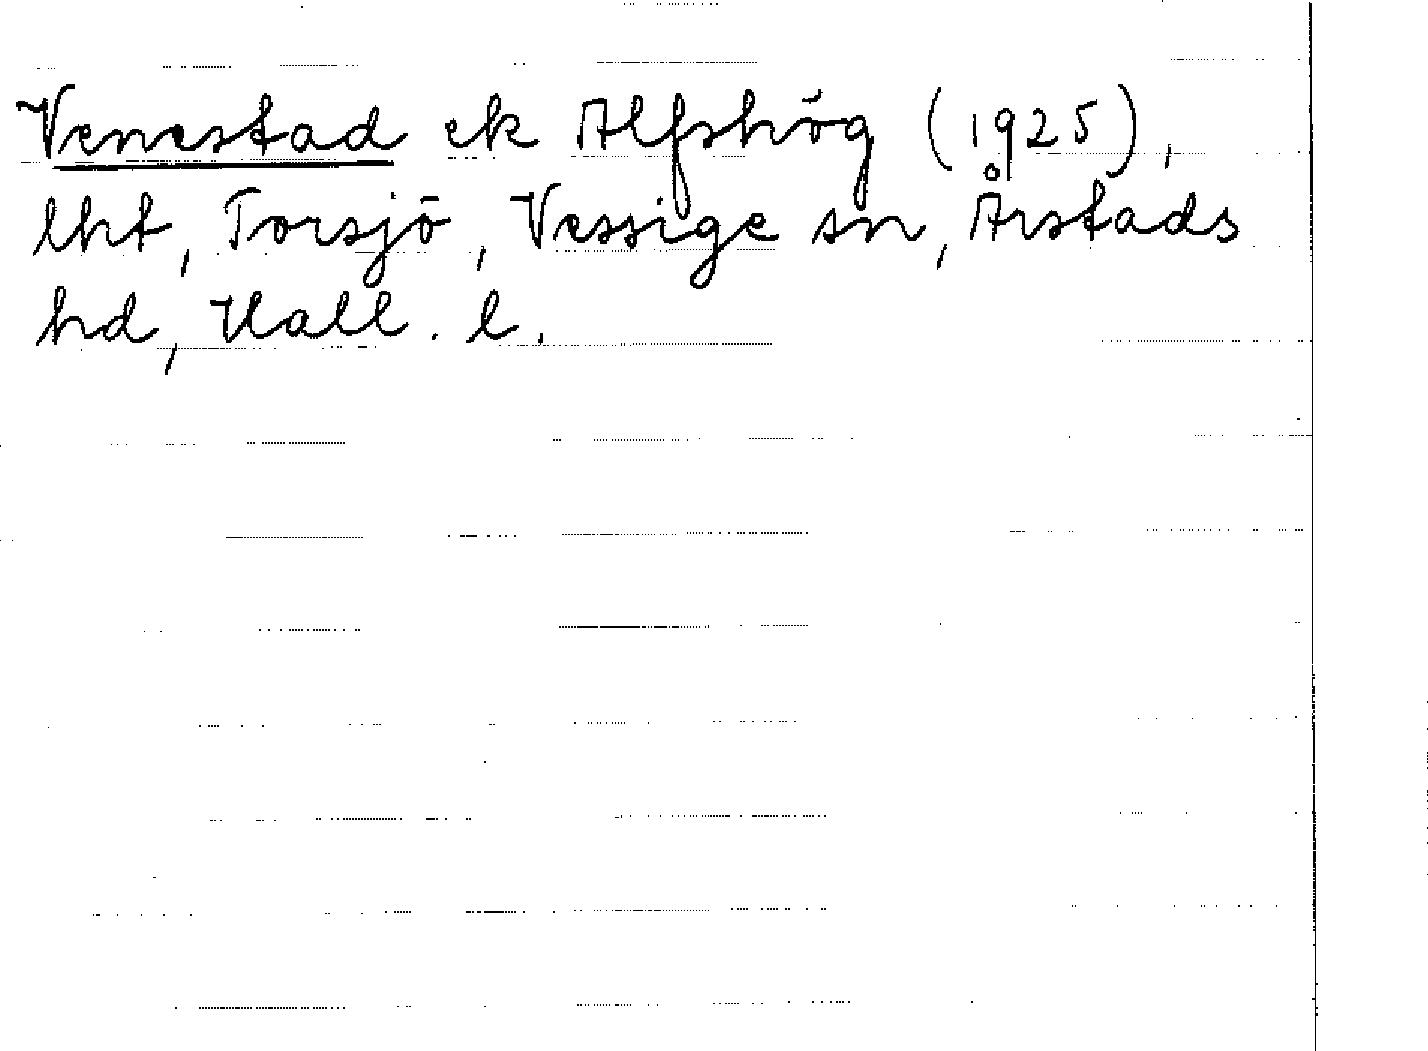 Venestad ek Alfshög (1925),
lht, Torsjö, Vessige sn, Årstads
hd, Hall. l.